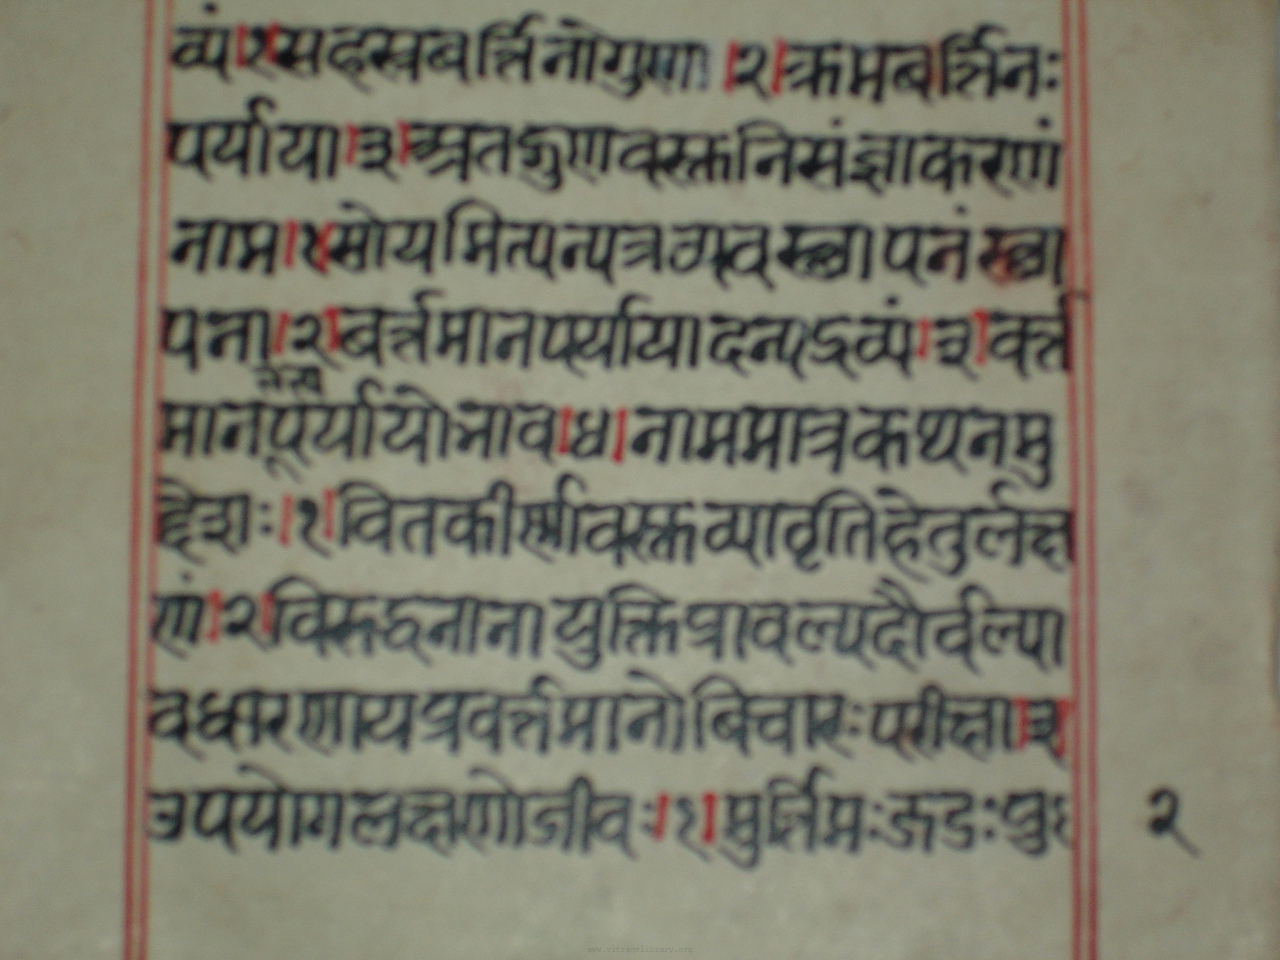 व्यं।१।सहस्वबर्त्तिनोगुणाः।२।क्रमबर्त्तिनः
पर्याया।३।अतगुणवस्तुनिसंज्ञाकरणं
नाम।१।सोयमित्यन्यत्रव्यवस्थापनंस्था
पना।२।बर्त्तमानपर्यायादन्यद्रव्यं।३।वर्त्त
मानपर्यायोभाव।४।नाममात्रकथनमु
द्देशः।१।वितकीर्णवस्तुव्यावृतिहेतुर्लक्ष
णं।२।विरुद्धनानायुक्तिप्राबल्यदौर्वल्या
वधारणायप्रवर्त्तमानोबिचारःपरीक्षा।३।
उपयोगलक्षणोजीवः।१।मुर्त्तिमःजडःपुद्ग
२